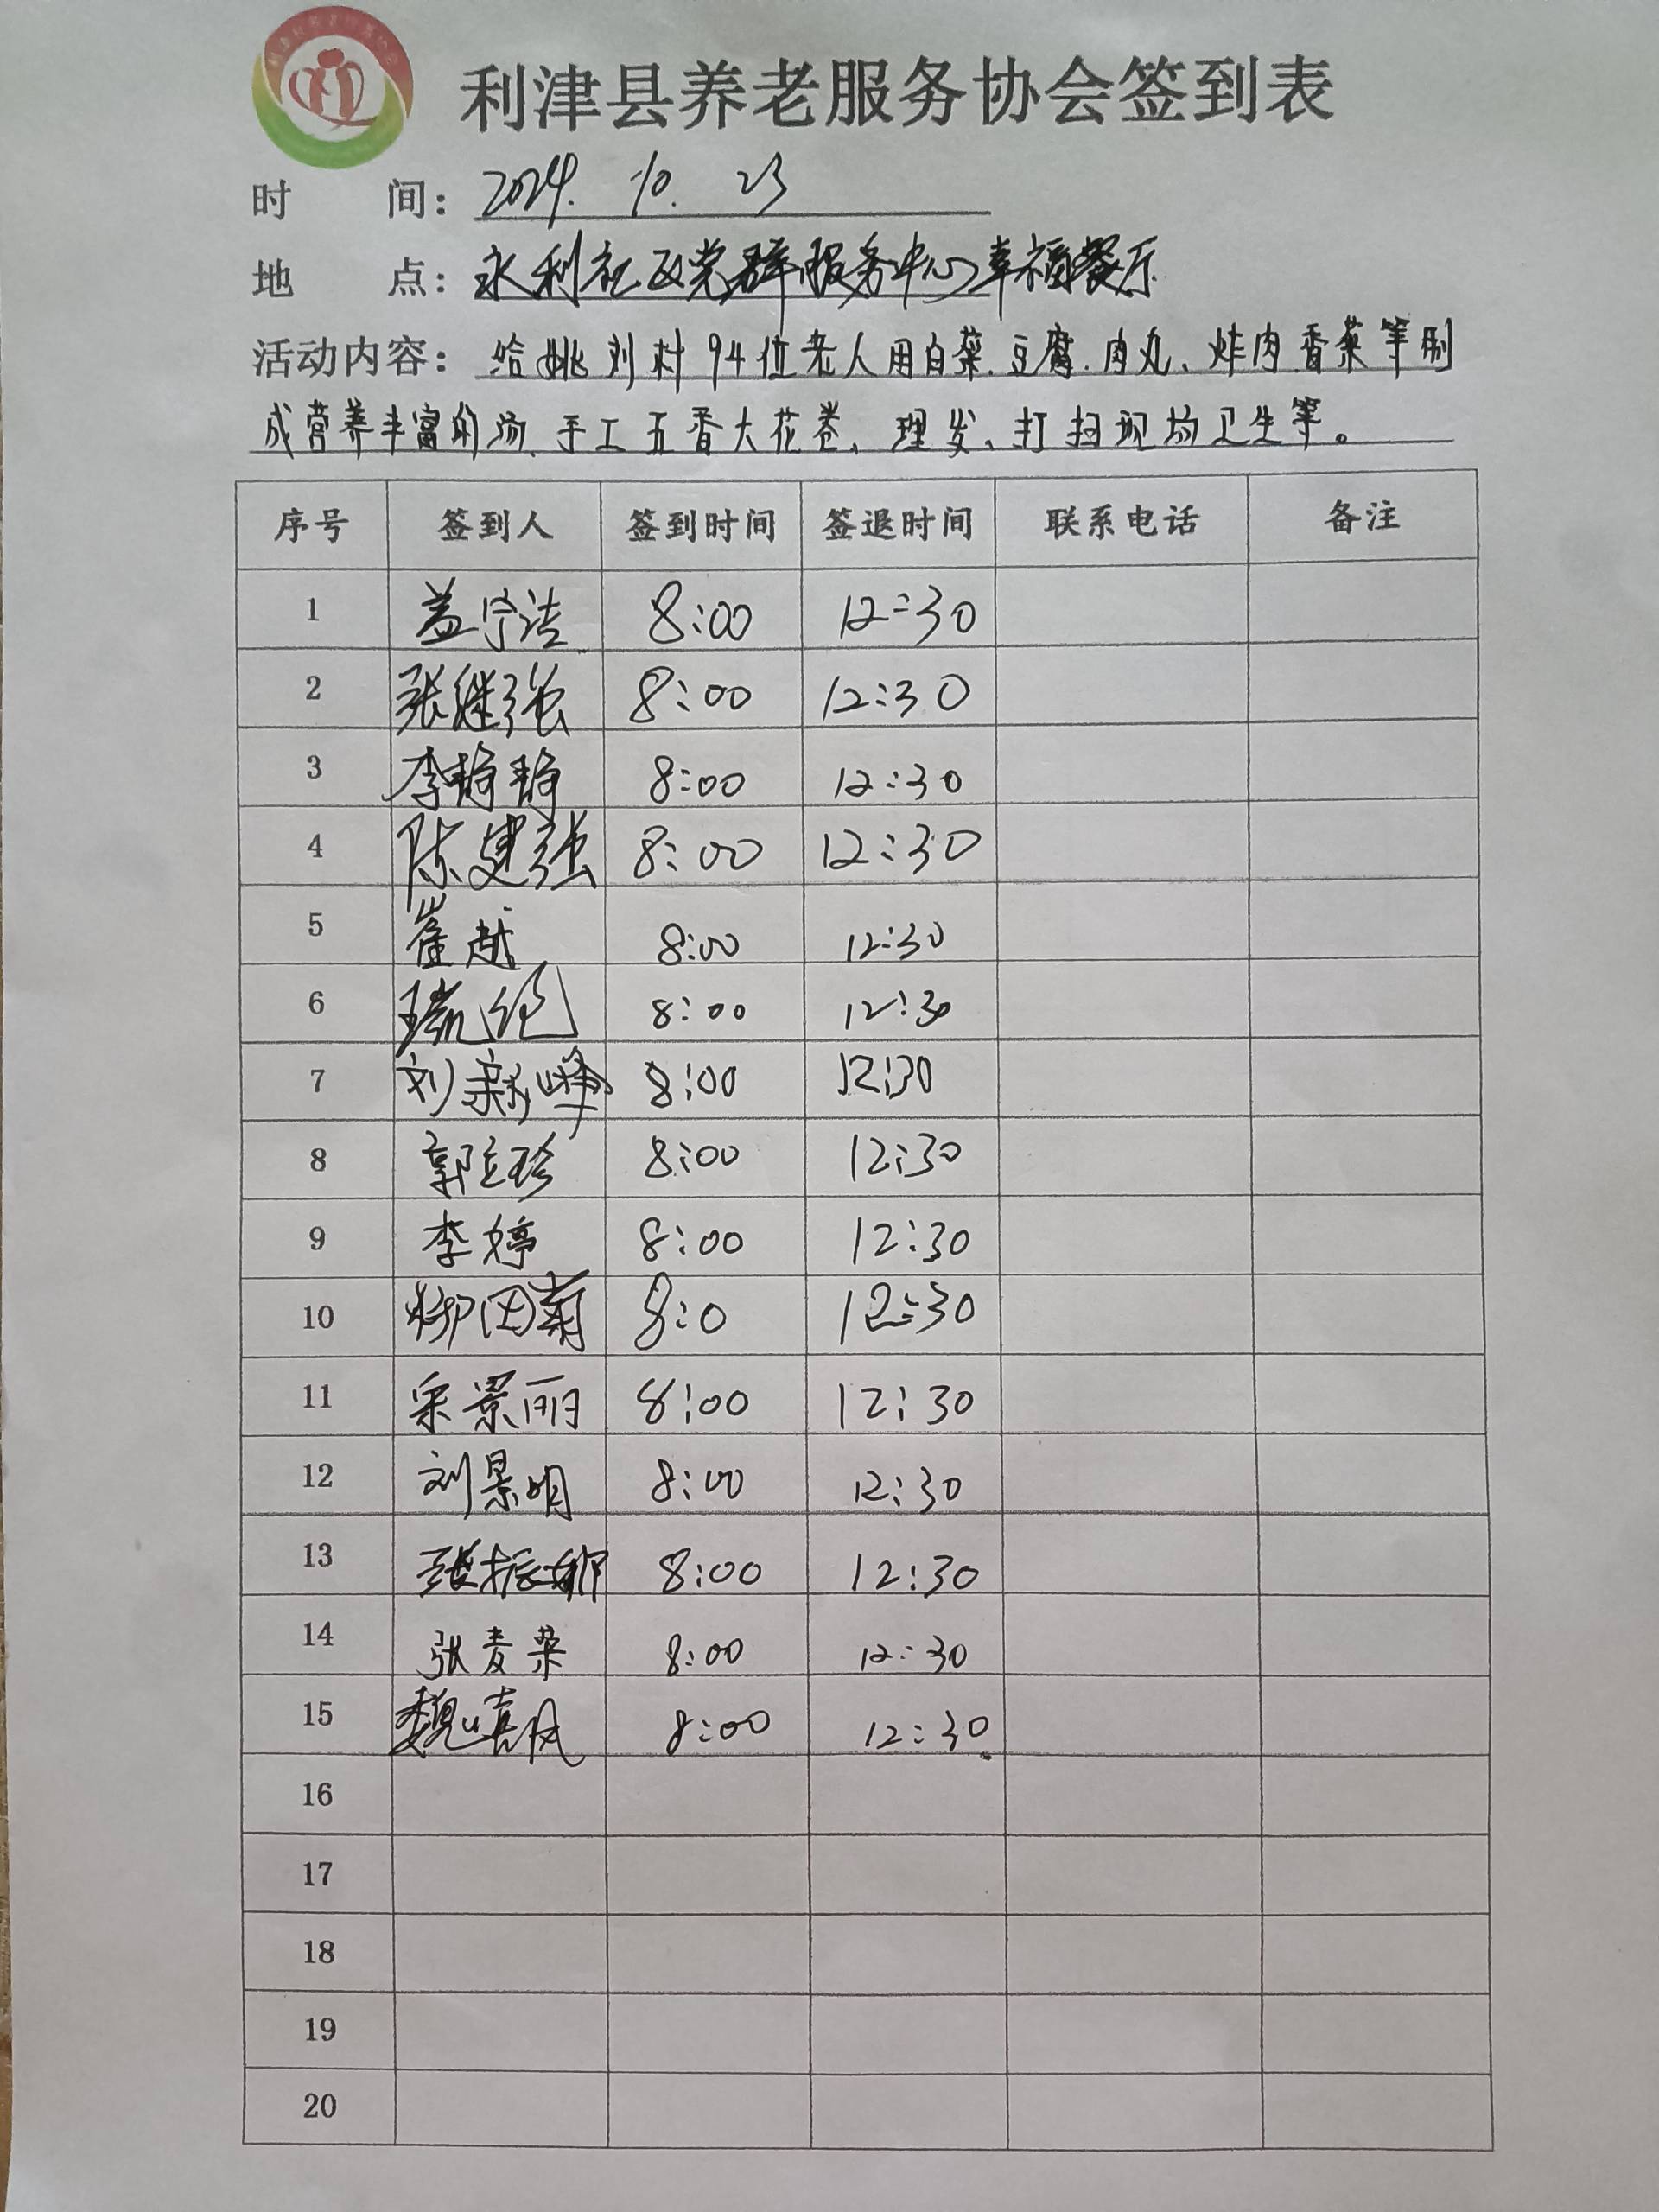 利津县养老服务协会签到表
时 间: 2024. 10. 23
地 点: 永利社区党群服务中心幸福餐厅
活动内容: 给姚刘村94位老人用白菜、豆腐、肉丸、炸肉香菜等制
成营养丰富的汤、手工五香大花卷、理发、打扫现场卫生等。
序号 签到人 签到时间 签退时间 联系电话 备注
1 盖宁洁 8:00 12:30
2 张继强 8:00 12:30
3 李琦琦 8:00 12:30
4 陈建强 8:00 12:30
5 崔越 8:00 12:30
6 8:00 12:30
7 刘新峰 8:00 12:30
8 郭立珍 8:00 12:30
9 李婷 8:00 12:30
10 8:0 12:30
11 景丽 8:00 12:30
12 刘景明 8:00 12:30
13 张振娜 8:00 12:30
14 张麦荣 8:00 12:30
15 魏喜凤 8:00 12:30
16
17
18
19
20